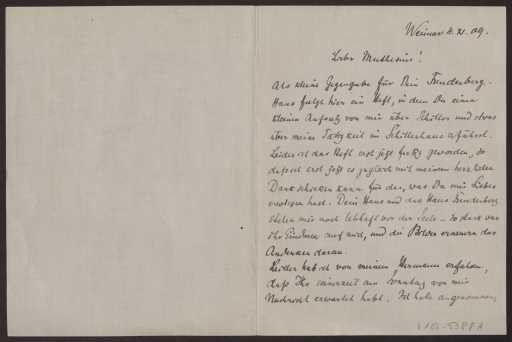 Weimar 8. XI. 09.
Lieber Muthesius!
Als kleine Gegengabe für Dein Freudenberg-
Haus folgt hier ein Heft, in dem Du einen
kleinen Aufsatz von mir über Schiller und etwas
über meine Tätigkeit im Schillerhause erfährst.
Leider ist das Heft erst jetzt fertig geworden, so
daß ich erst jetzt es zugleich mit meinem herzlichen
Dank schicken kann für das, was Du mir Liebes
erwiesen hast. Dein Haus und das Haus Freudenberg
stehen mir noch lebhaft vor der Seele – so stark war
ihr Eindruck auf mich, und die Bilder erneuern das
Andenken daran.
Leider hab ich von meinem Hermann erfahren,
daß Ihr seinerzeit am Sonntag von mir
Nachricht erwartet habt. Ich hatte angenommen,